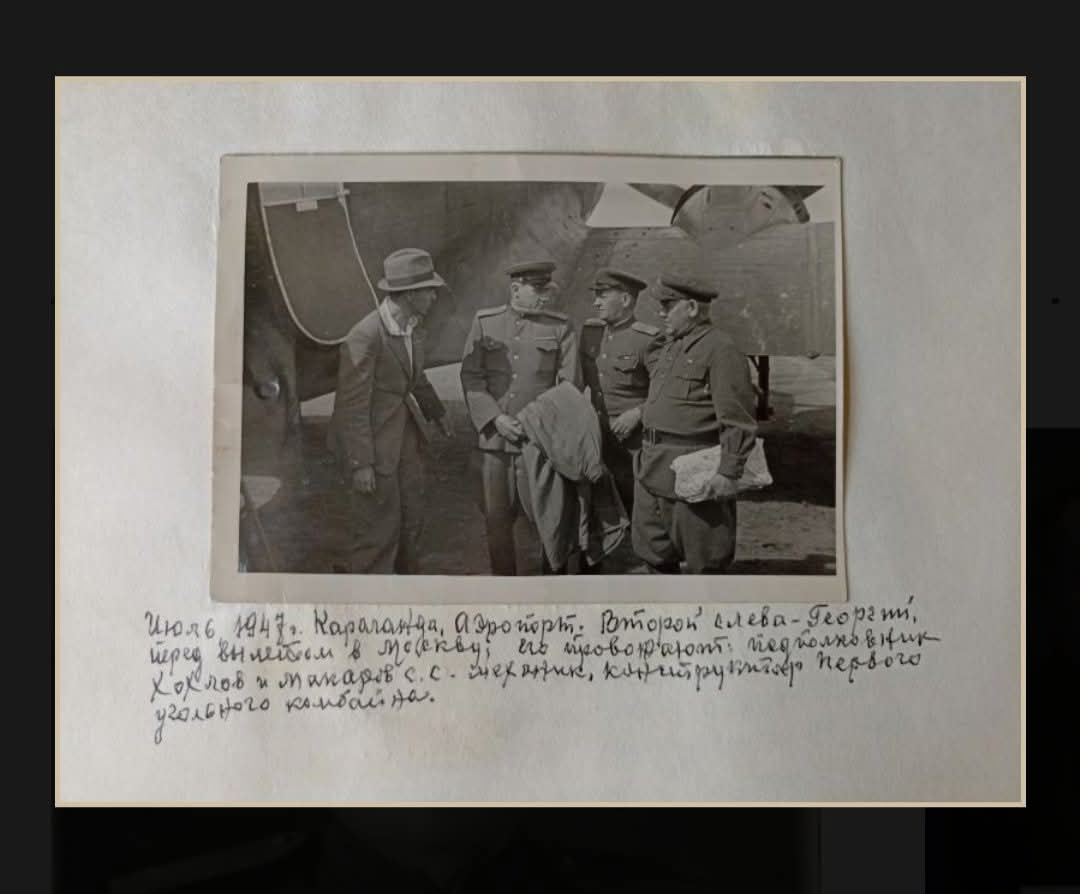 Июль 1947г. Караганда, Аэропорт. Второй слева - Георгий,
перед вылетом в Москву; его провожают: подполковник
Хохлов и Макаров С.С. - механик, конструктор первого
угольного комбайна.